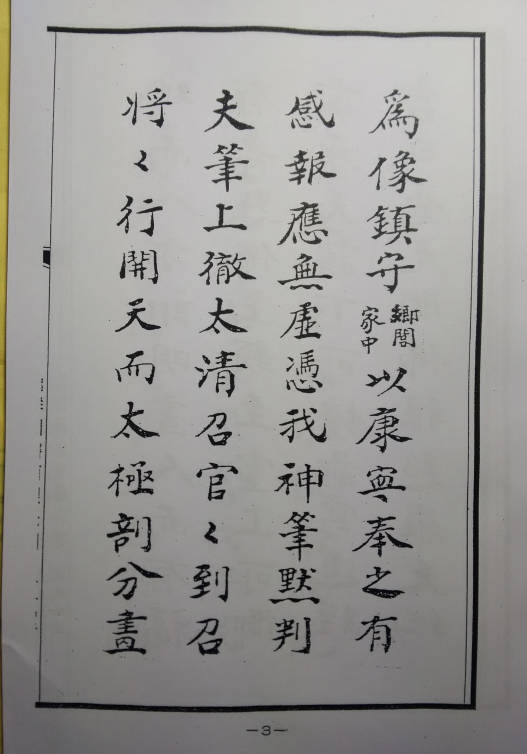 為像鎮守鄉閭家中以康寧奉之有
感報應無虛憑我神筆默判
夫筆上徹太清召官〻到召
将〻行開天而太極剖分畫
—3—